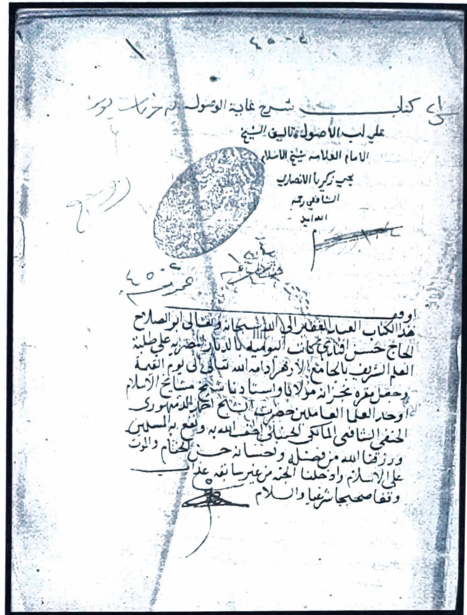 ٤٥٠٢
كتاب شرح غاية الوصول
علي لب الأصول تاليف الشيخ
الامام العلامه شيخ الاسلام
يحي زكريا الانصاري
الشافعي رحمه
الله امين
٤٥٠٢
اوقف
هذا الكتاب العبد الفقير الى الله سبحانه وتعالى ابو الصلاح
الحاج حسن افندي كاتب اليوميه بالديار المصريه على طلبة
العلم الشريف بالجامع الازهر ادامه الله تعالى الى يوم القيمة
وجعل مقره بخزانة مولانا واستاذنا شيخ مشايخ الاسلام
اوحد العلما العاملين حضرت الشيخ احمد الدمنهوري
الحنفي الشافعي المالكي الحنبلي لطف الله به ونفع به المسلمين
ورزقنا الله من فضله واحسانه حسن الختام والموت
على الاسلام وادخلنا الجنه من غير سابقة عذاب
وقفا صحيحا شرعيا والسلام